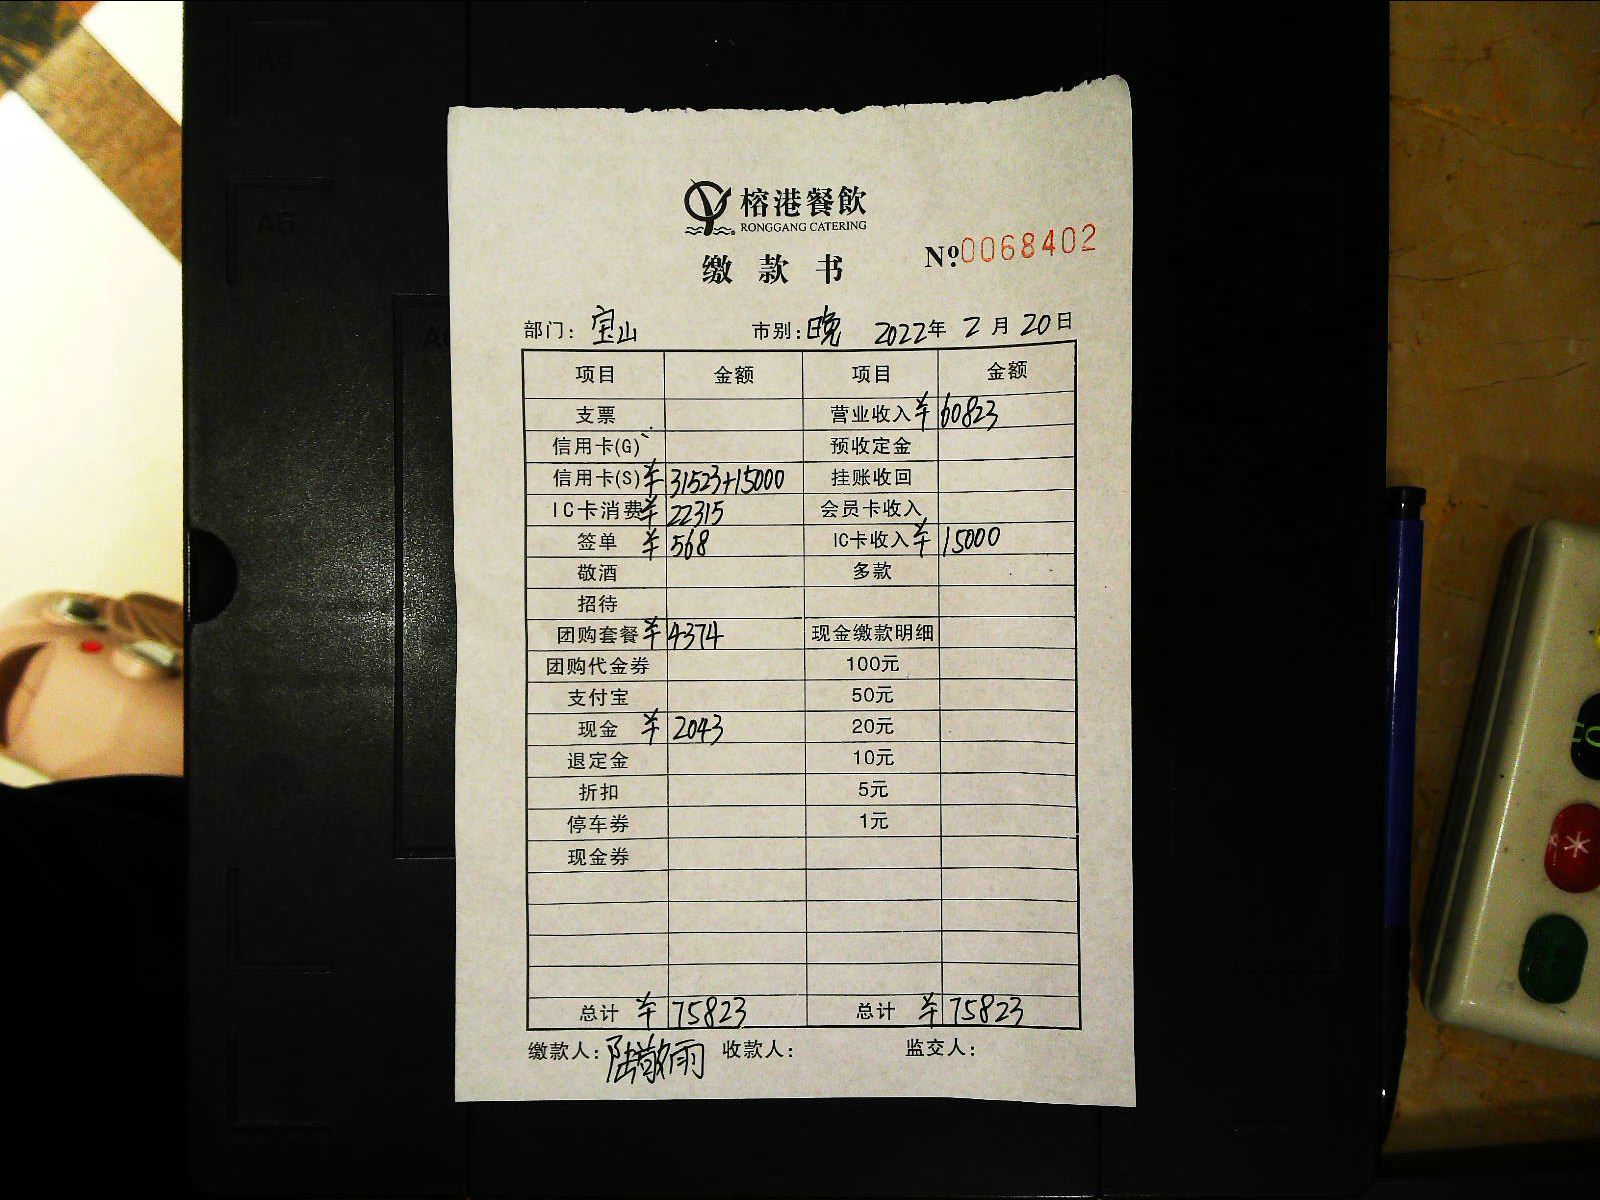 A4
A5
榕港餐飲
RONGGANG CATERING
缴款书
№:0068402
部门: 宝山 市别: 晚 2022年 2月 20日
项目 金额 项目 金额
支票 营业收入 ¥60823
信用卡(G) 预收定金
信用卡(S) ¥31523+15000 挂账收回
IC卡消费 ¥22315 会员卡收入
签单 ¥568 IC卡收入 ¥15000
敬酒 多款
招待
团购套餐 ¥4374 现金缴款明细
团购代金券 100元
支付宝 50元
现金 ¥2043 20元
退定金 10元
折扣 5元
停车券 1元
现金券
总计 ¥75823 总计 ¥75823
缴款人: 陆敬雨 收款人: 监交人: